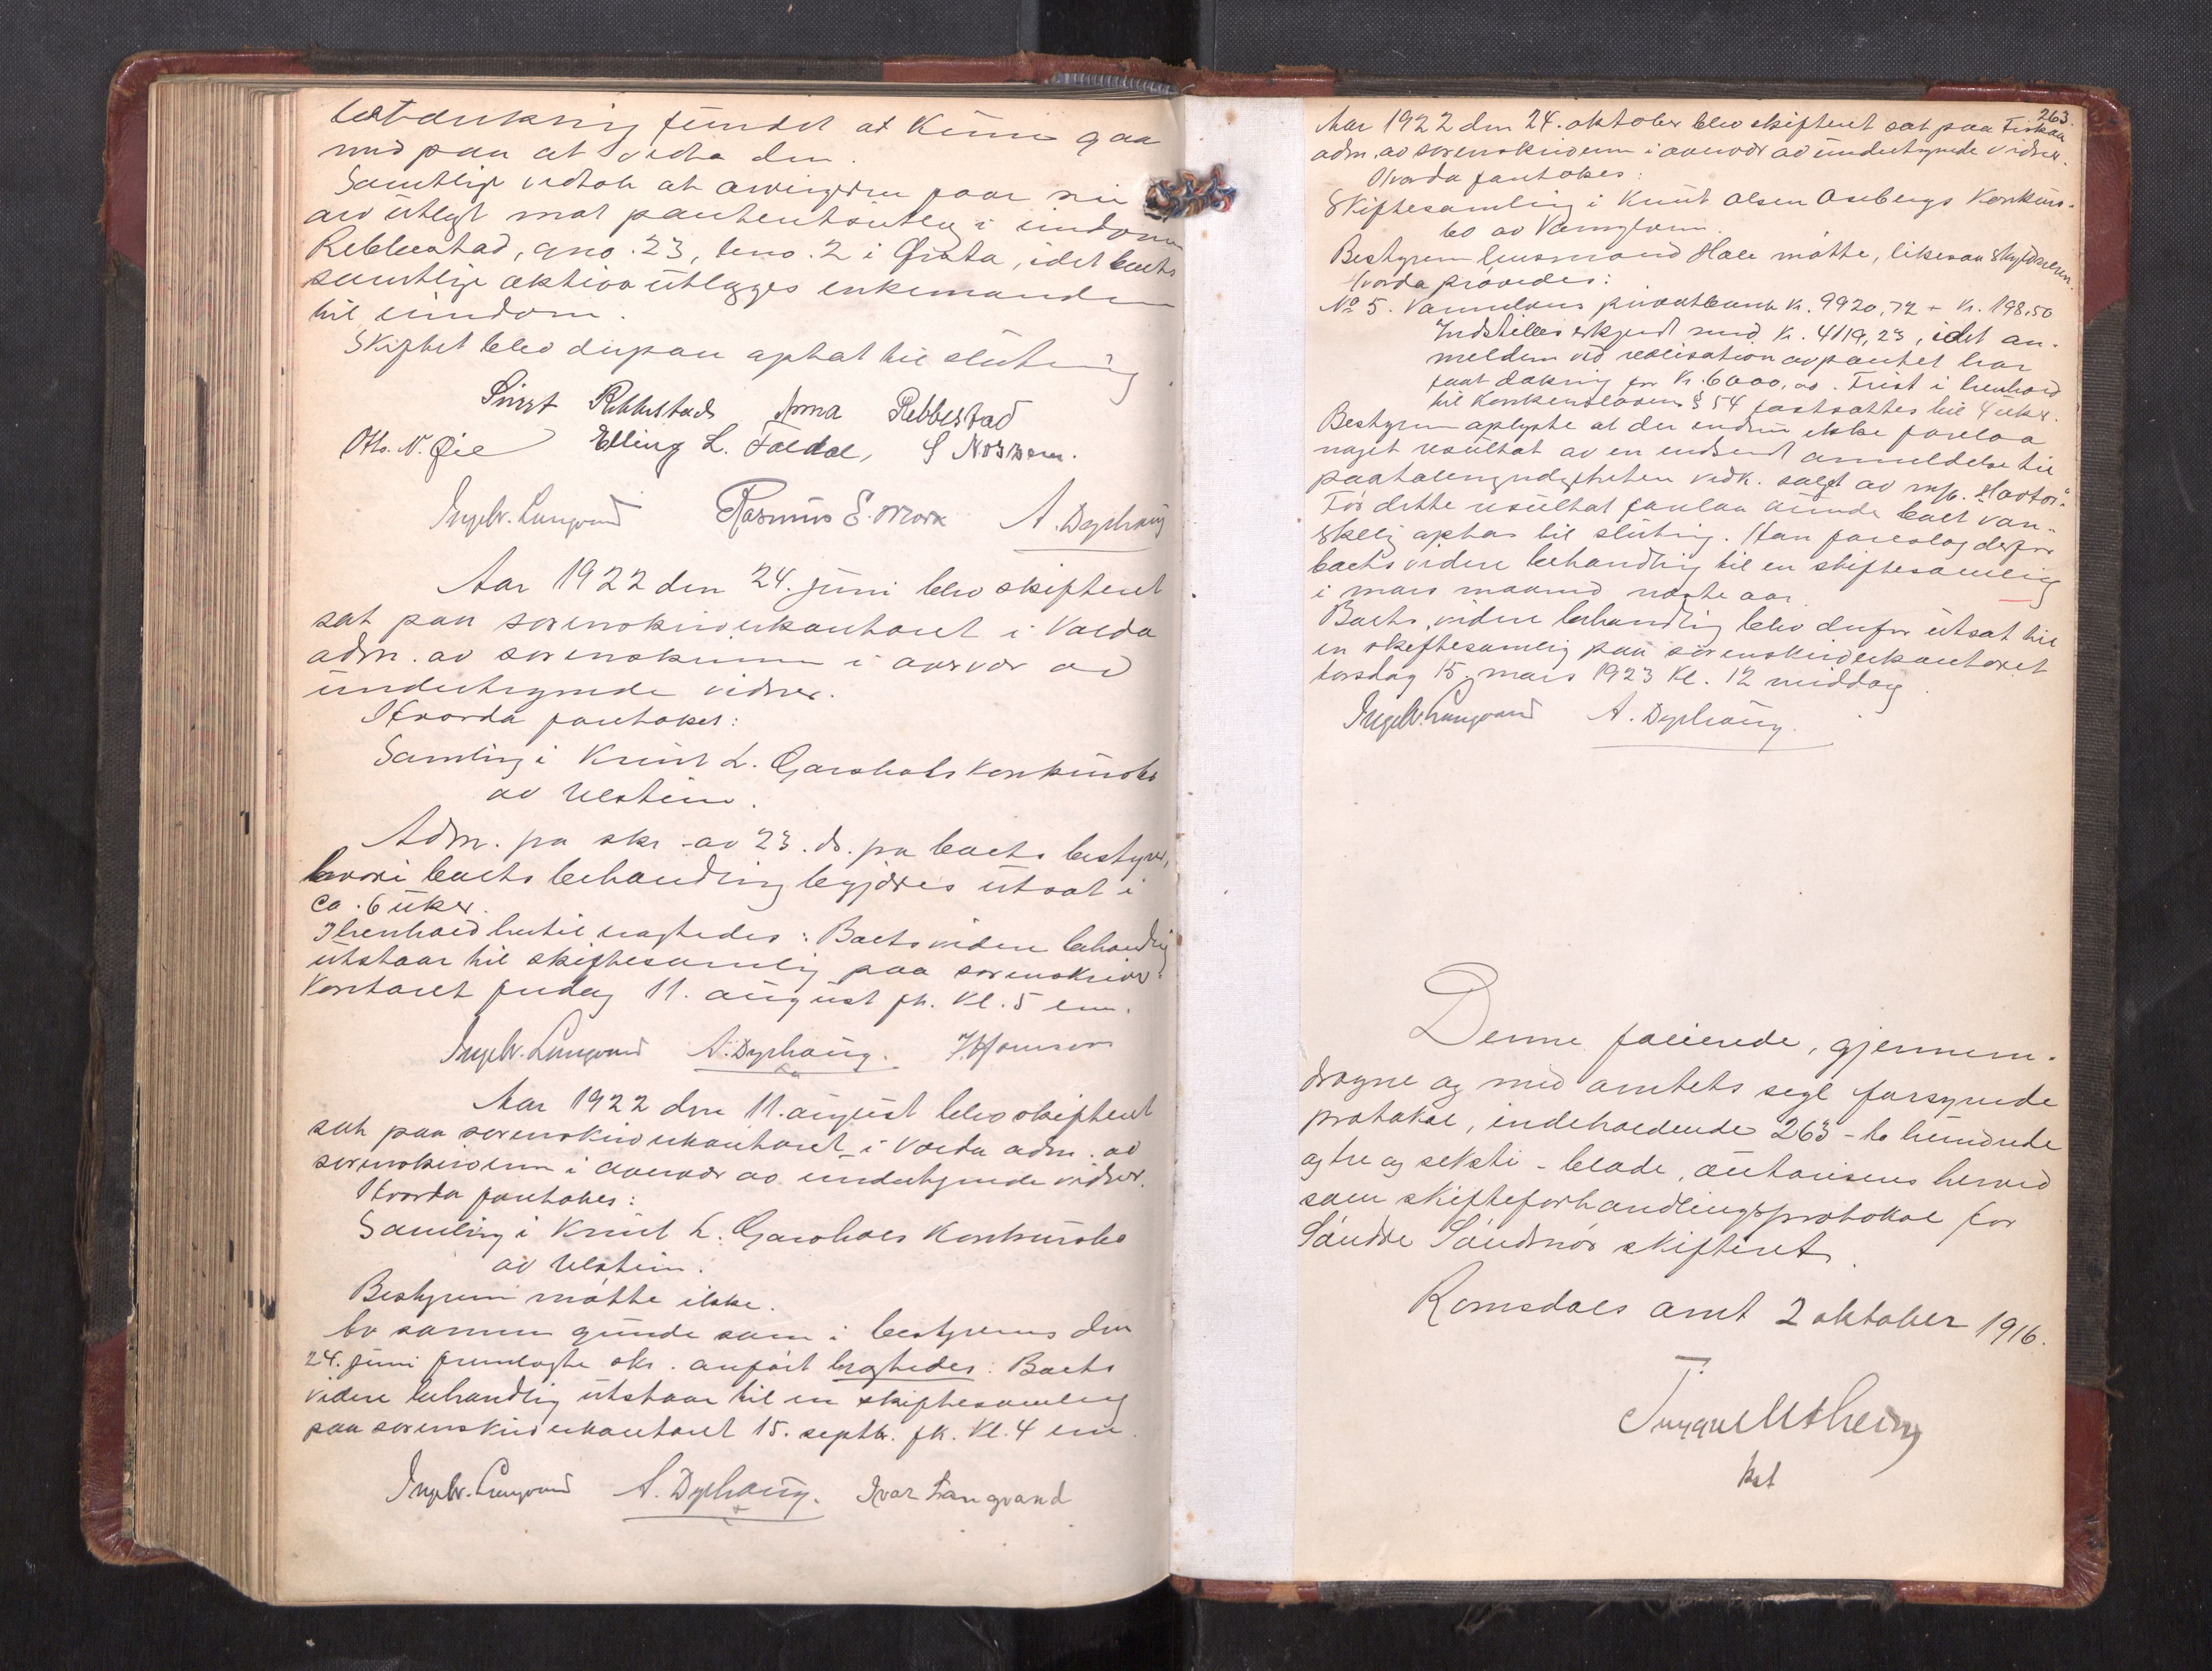 betænkning fundet at kunne gaa
med paa at vedta den.
Samtlige vedtok at arvingerne faar sin
arv utlagt mot panteutstedelse i eiendommen
Rebbestad, gno. 23, bno. 2 i Ørsta, idet boets
samtlige aktiva utlægges enkemanden
til eiendom.
Skiftet blev derpaa optat til slutning.
Sivert Rebbestad Anna Rebbestad
Ole N. Øie Elling L. Foldal, S Nossen.
Ingebr. Langvand Rasmus E. Mork A. Dyrhaug
Aar 1922 den 24. juni blev skifteret
sat paa sorenskriverkontoret i Volda
adm. av sorenskriveren i overvær av
undertegnede vidner.
Hvorda foretokes:
Samling i Knut L. Garshols konkursbo
av Ulstein.
Adm. fra skr. av 23. ds. fra boets bestyrer,
hvori boets behandling begjæres utsat i
ca. 6 uker.
I henhold hertil eragtedes: Boets videre behandling
utstaar til skiftesamling paa sorenskriver-
kontoret fredag 11. august fk. kl. 5 em.
Ingebr. Langvand A. Dyrhaug.
Aar 1922 den 11. august blev skifteret
sat paa sorenskriverkontoret i Volda adm. av
sorenskriveren i overvær av undertegnede vidner.
Hvorda foretokes:
Samling i Knut L. Garshols konkursbo
av Ulstein.
Bestyreren møtte ikke.
Av samme grunde som i bestyrerens den
24. juni fremlagte skr. anført eragtedes: Boets
videre behandling utstaar til en skiftesamling
paa sorenskriverkontoret 15. septbr. fk. kl. 4 em.
Ingebr. Langvand A. Dyrhaug. Ivar Langvand
263.
Aar 1922 den 24. oktober blev skifteret sat paa Fiskaa
adm. av sorenskriveren i overvær av undertegnede vidner.
Hvorda foretokes:
Skiftesamling i Knut Olsen Osebergs konkurs-
bo av Vannylven.
Bestyreren lensmand Hole møtte, likesaa skyldneren.
Hvorda prøvedes:
No 5. Vannelvens privatbank kr. 9920,72 + kr. 198,50
Indstilles erkjendt med kr. 4119,23, idet an-
melderen ved realisation av pantet har
faat dækning for kr. 6000,00. Frist i henhold
til konkurslovens § 54 fastsattes til 4 uker.
Bestyreren oplyste at der endnu ikke forelaa
noget resultat av en indsendt anmeldelse til
paatalemyndigheten vedk. salget av m/k. "Havtor".
Før dette resultat forelaa kunde boet van-
skelig optas til slutning. Han foreslog derfor
boets videre behandling til en skiftesamling
i mars maaned næste aar.
Boets videre behandling blev derfor utsat til
en skiftesamling paa sorenskriverkontoret
torsdag 15. mars 1923 kl. 12 middag.
Ingebr. Langvand A. Dyrhaug.
Denne folierede, gjennem-
dragne og med amtets segl forsynede
protokol, indeholdende 263 - to hundrede
og tre og seksti - blade, autoriseres herved
som skifteforhandlingsprotokol for
Søndre Søndmør skifteret.
Romsdals amt 2 oktober 1916.
Trygve Utheim
kst